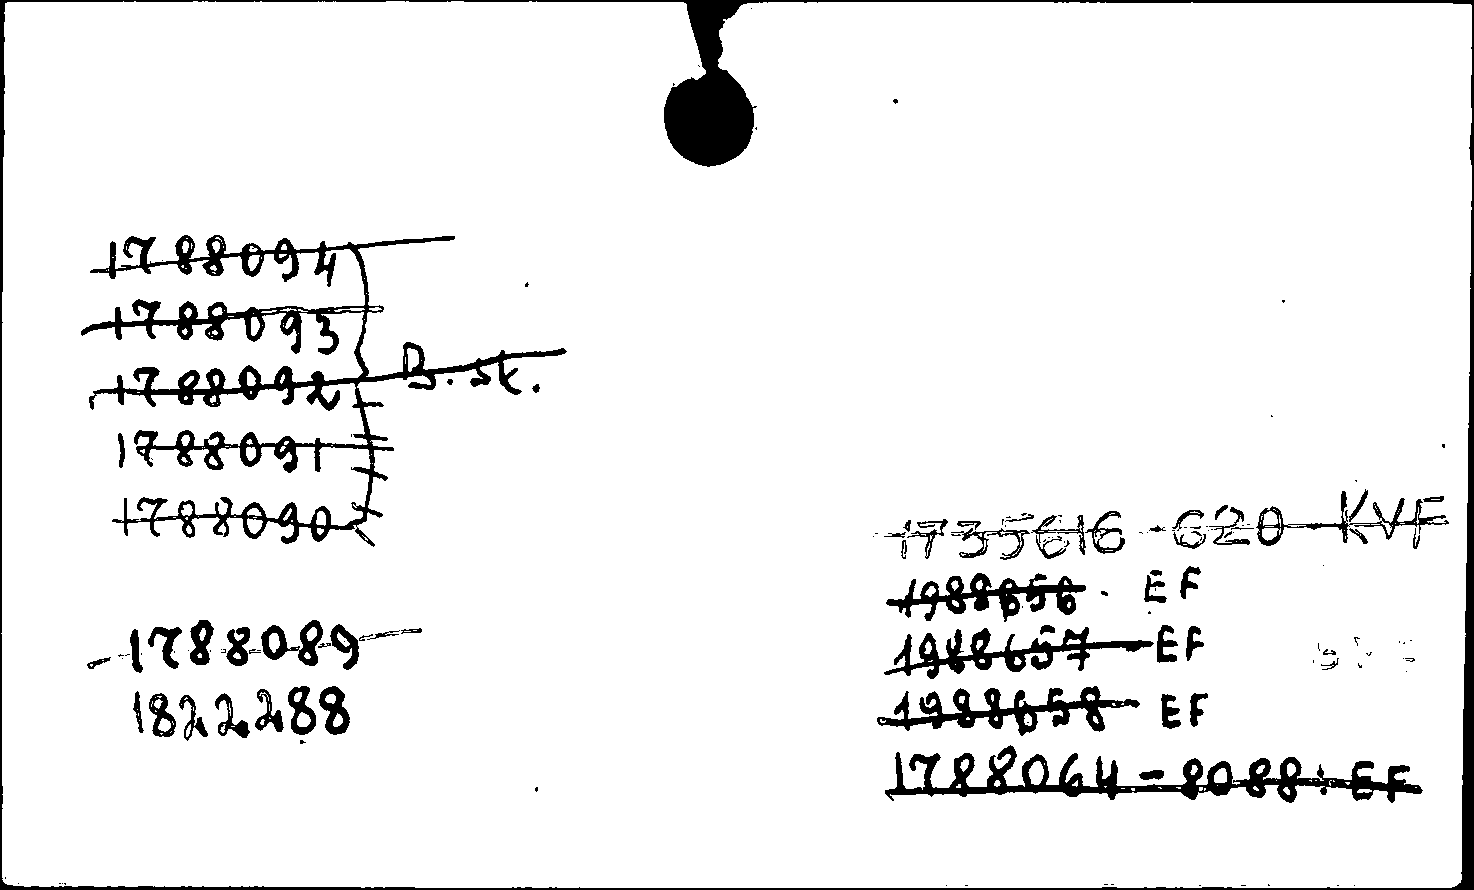 1788094
1788093
1788092 B. sk.
1788091
1788090
1788089
1822288
1735616 - 620 - KVF
1988656. EF
1988657 - EF
1988658 - EF
1788064 - 8088: EF